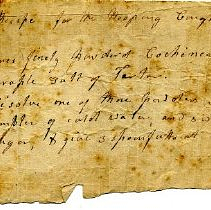 Recipe for the Hooping Coug
finely powdered Cochinea
Salt of Tartar
one of those powders
of cold water and
& give 3 spoonfulls at